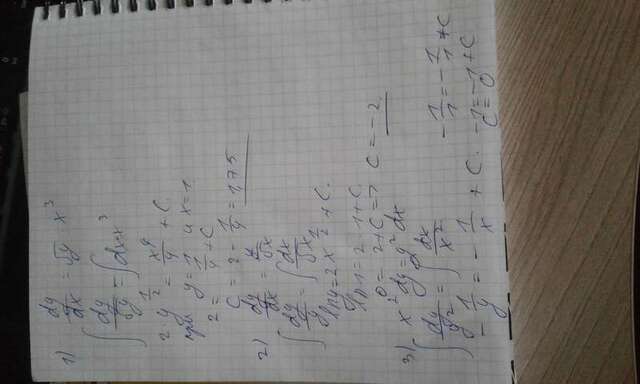 1) dy/dx = √y · x³
∫ dy/√y = ∫ dx·x³
2·y^(1/2) = x⁴/4 + C.
при y = 1 и x = 1
2 = 1/4 + C
C = 2 - 1/4 = 1,75
2) dy/dx = y/√x
∫ dy/y = ∫ dx/√x
ln y = 2x^(1/2) + C.
ln 1 = 2·1 + C.
0 = 2 + C => C = -2.
3) x² dy = y² dx
∫ dy/y² = ∫ dx/x²
-1/y = -1/x + C.
-1/1 = -1/1 + C
-1 = -1 + C
C = 0